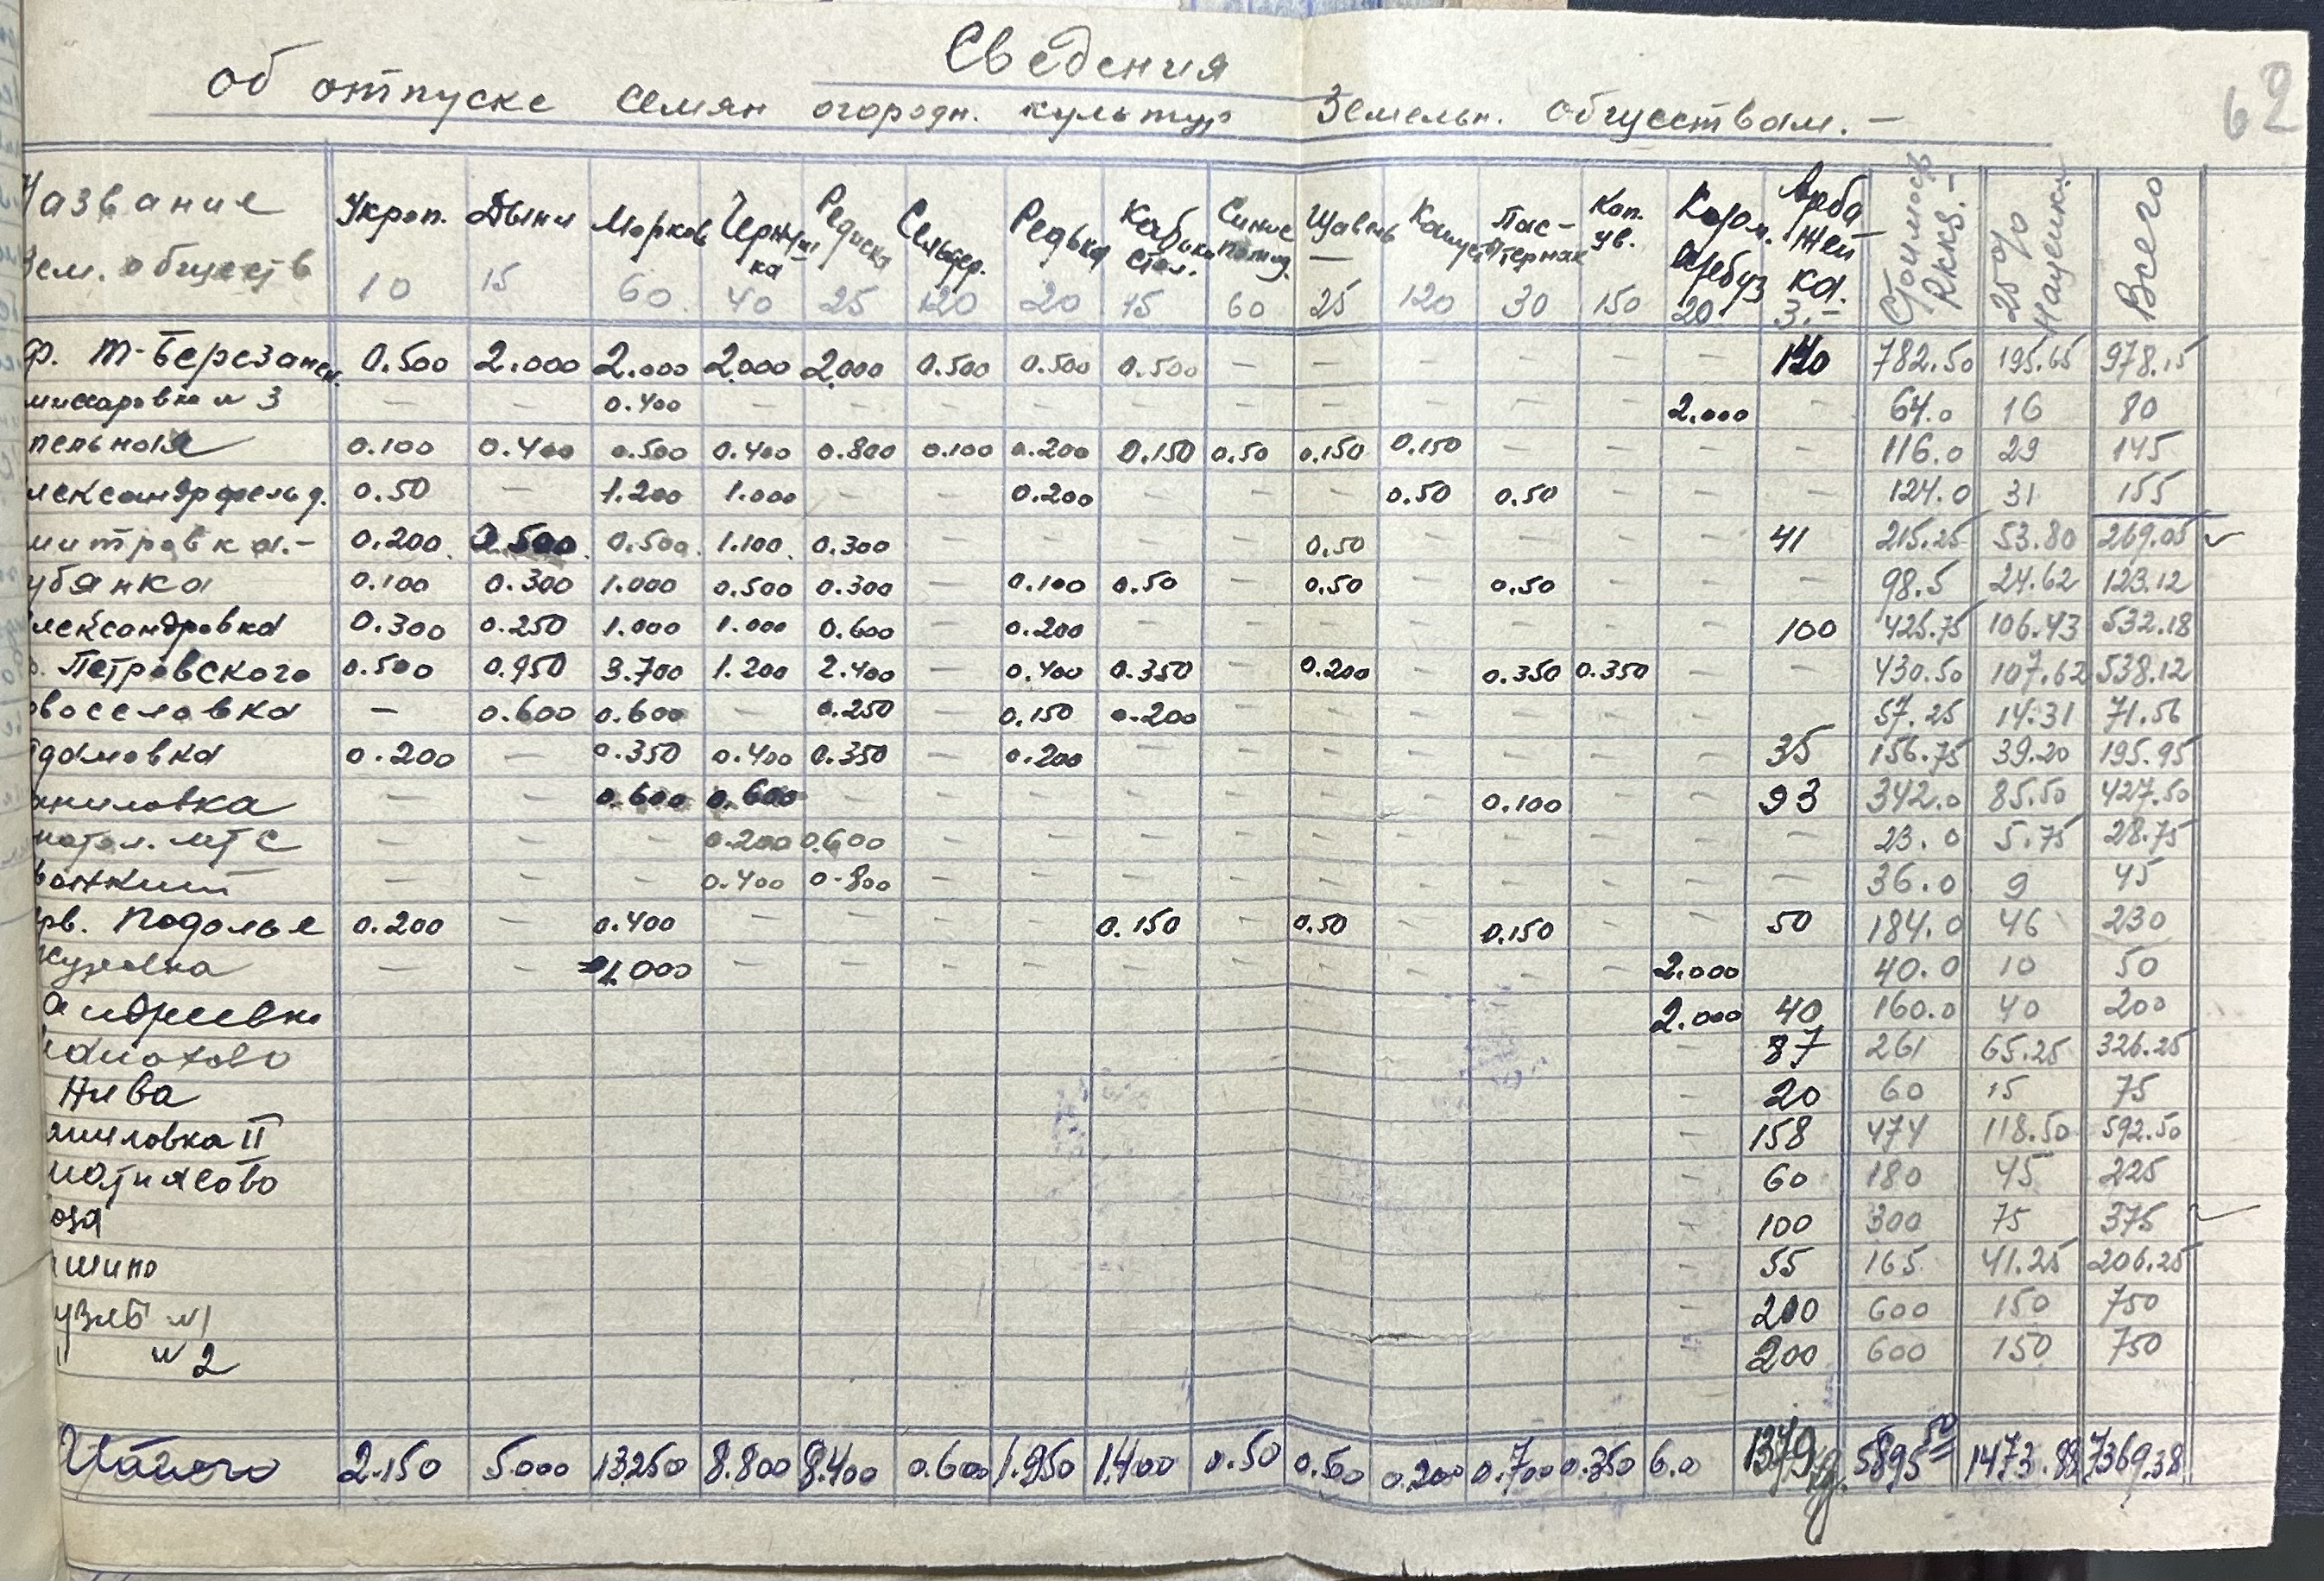 62
Сведения
об отпуске семян огородн. культур Земельн. обществам.-
Название Зем. обществ Укроп. 10 Дыни 15 Морковь 60 40 Редиска 25 Сельдер. 120 Редька 20 Кабачки стол. 15 Синие помид. 60 Щавель 25 Капуст 120 Пас-тернак 30 Кап. цв. 150 Корм. арбуз 20 3.- Стоимость RKKS.- 25% Наценки Всего
ф. Т-Березанск. 0.500 2.000 2.000 2.000 2.000 0.500 0.500 0.500 — — — — — — 782.50 195.65 978.15
миссаровка и 3 — — 0.400 — — — — — — — — — — 2.000 — 64.0 16 80
пельное 0.100 0.400 0.500 0.400 0.800 0.100 0.200 0.150 0.50 0.150 0.150 — — — — 116.0 29 145
лександрфельд. 0.50 — 1.200 1.000 — — 0.200 — — — 0.50 0.50 — — — 124.0 31 155
митровка.- 0.200 0.500 0.500 1.100 0.300 — — — — 0.50 — — — — 41 215.25 53.80 269.05
убянка 0.100 0.300 1.000 0.500 0.300 — 0.100 0.50 — 0.50 — 0.50 — — — 98.5 24.62 123.12
лександровка 0.300 0.250 1.000 1.000 0.600 — 0.200 — — — — — — — 100 425.75 106.43 532.18
. Петровского 0.500 0.950 3.700 1.200 2.400 — 0.400 0.350 — 0.200 — 0.350 0.350 — — 430.50 107.62 538.12
овоселовка — 0.600 0.600 — 0.250 — 0.150 0.200 — — — — — — — 57.25 14.31 71.56
дамовка 0.200 — 0.350 0.400 0.350 — 0.200 — — — — — — — 35 156.75 39.20 195.95
аниловка — — 0.600 0.600 — — — — — — — 0.100 — — 93 342.0 85.50 427.50
натол. МТС — — — 0.200 0.600 — — — — — — — — — — 23.0 5.75 28.75
— — — 0.400 0.800 — — — — — — — — — — 36.0 9 45
рв. Подолье 0.200 — 0.400 — — — — 0.150 — 0.50 — 0.150 — — 50 184.0 46 230
— — 1.000 — — — — — — — — — — 2.000 40.0 10 50
Андреевка 2.000 40 160.0 40 200
— 87 261 65.25 326.25
Нива — 20 60 15 75
аниловка II — 158 474 118.50 592.50
матиясово — 60 180 45 225
оза — 100 300 75 375
шино — 55 165 41.25 206.25
узлб и1 — 200 600 150 750
" и 2 200 600 150 750
Итого 2.150 5.000 13250 8.800 8.400 0.600 1.950 1.400 0.50 0.500 0.200 0.700 0.350 6.0 5895.50 1473.88 7369.38